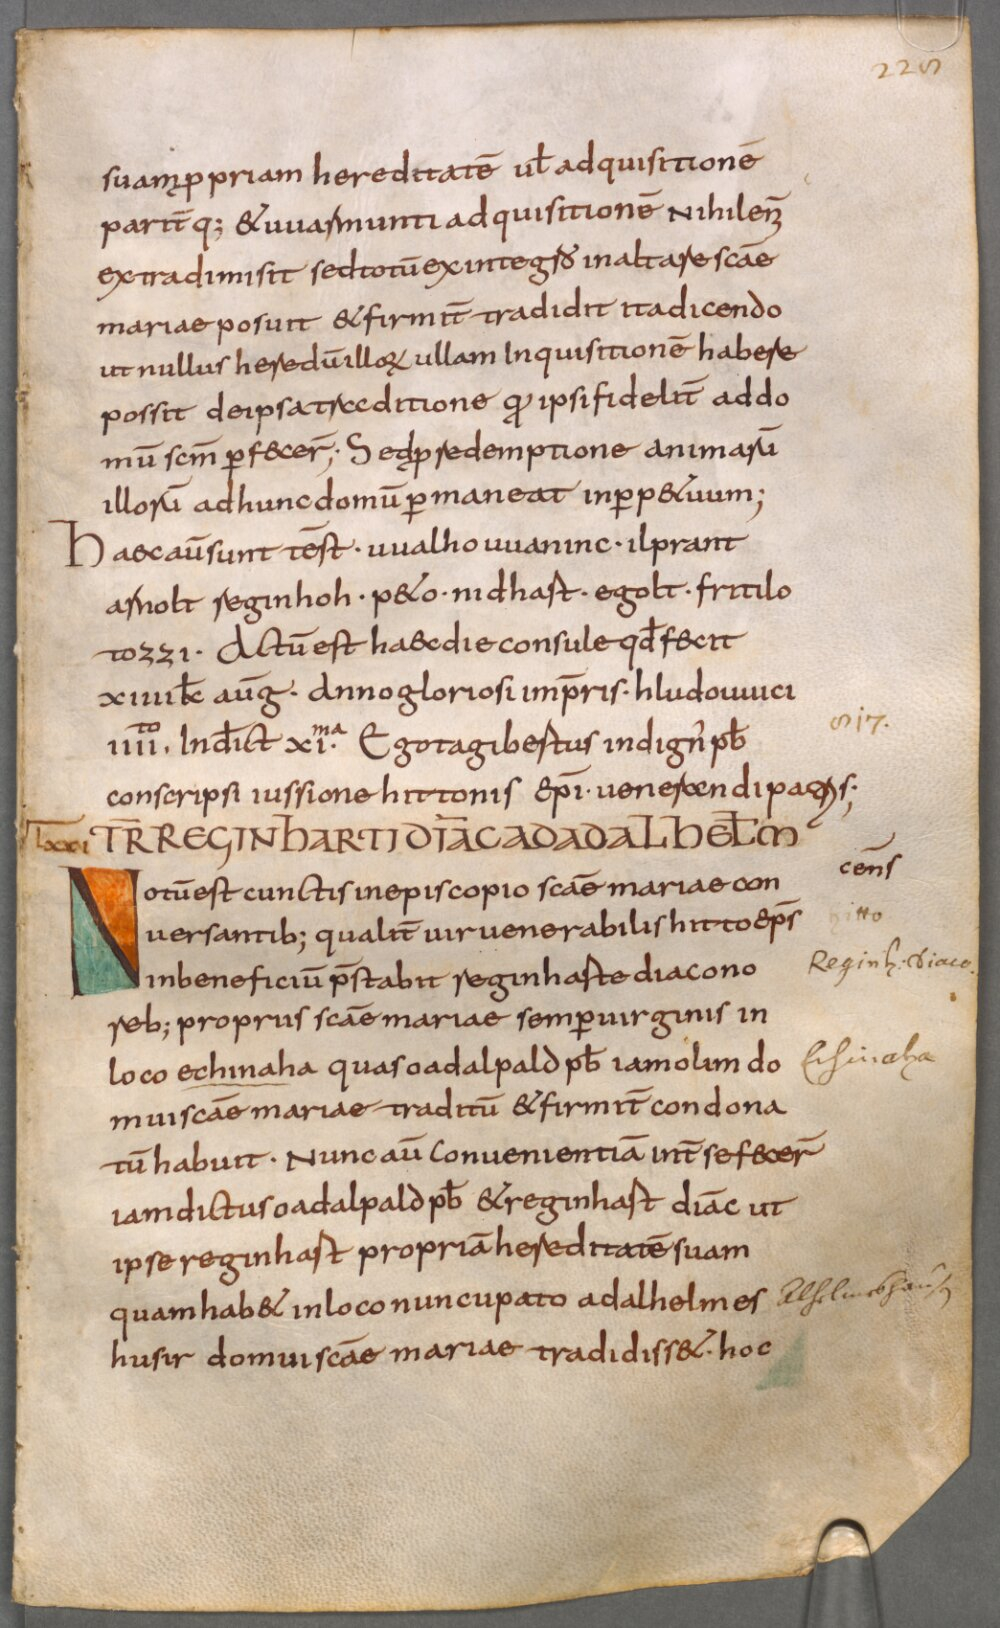 225
suam ꝓpriam hereditatē ul̄ adquisitionē
partītq; & uuasmunti adquisitionē Nihil enī
extra dimisit sed totū ex integro in altare scāe
mariae posuit & firmit̄ tradidit ita dicendo
ut nullus heredū illoꝝ ullam Inquisitionē habere
possit de ipsa traditione qđ ipsi fidelit̄ ad do
mū scm̄ ꝑfecer̄; Sed ꝓ redemptione animarū
illorū ad hunc domū ꝑmaneat in ꝑp&uum;
Haec aū sunt tēst · uualho uuaninc · ilprant
arnolt reginhoh · p&o · nidhart · egolt · fritilo
tozzi · Actū est haec die consule qđ fecit
xiiii kƚ aūg · Anno gloriosi imp̄ris · hludouuici
iiii to · Indict̄ xi ma · Ego tagibertus indign̄ p̄b
817.
conscripsi iussione hittonis ep̄i · uenerandi patris;
Lxxi TR̄ REGINHARTI DIĀC AD ADALHELM̄
Notū est cunctis in episcopio scāe mariae con
cens̄
uersantib; qualit̄ uir uenerabilis hitto ep̄s
hitto
in beneficiū p̄stabit reginharte diacono
Reginh. diaco.
reb; propriis scāe mariae semꝑ uirginis in
loco echinaha quas oadalpald p̄b iam olim do
Echinaha
mui scāe mariae traditū & firmit̄ condona
tū habuit · Nunc aū Conuenientiā int̄ se fecer̄
iamdictus oadalpald p̄b & reginhart diāc ut
ipse reginhart propriā hereditatē suam
quam hab& in loco nuncupato adalhelmes
husir domui scāe mariae tradidiss& · hoc